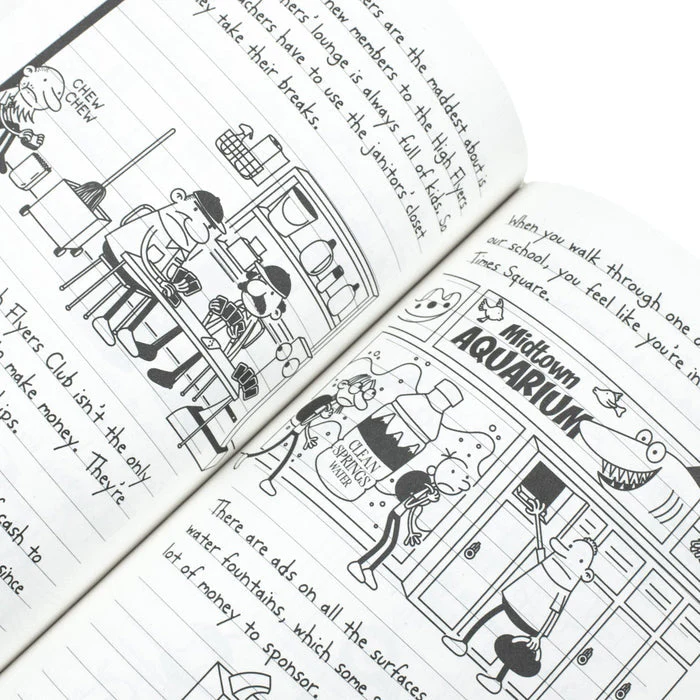 ers are the maddest about is
new members to the High Flyers
ners' lounge is always full of kids. So
achers have to use the janitors' closet
ey take their breaks.
CHEW
CHEW
h Flyers Club isn't the only
to make money. They're
ips.
cash to
since
When you walk through one o
our school, you feel like you're in
Times Square.
Midtown
AQUARIUM
CLEAN
SPRINGS
WATER
There are ads on all the surfaces
water fountains, which some
lot of money to sponsor.